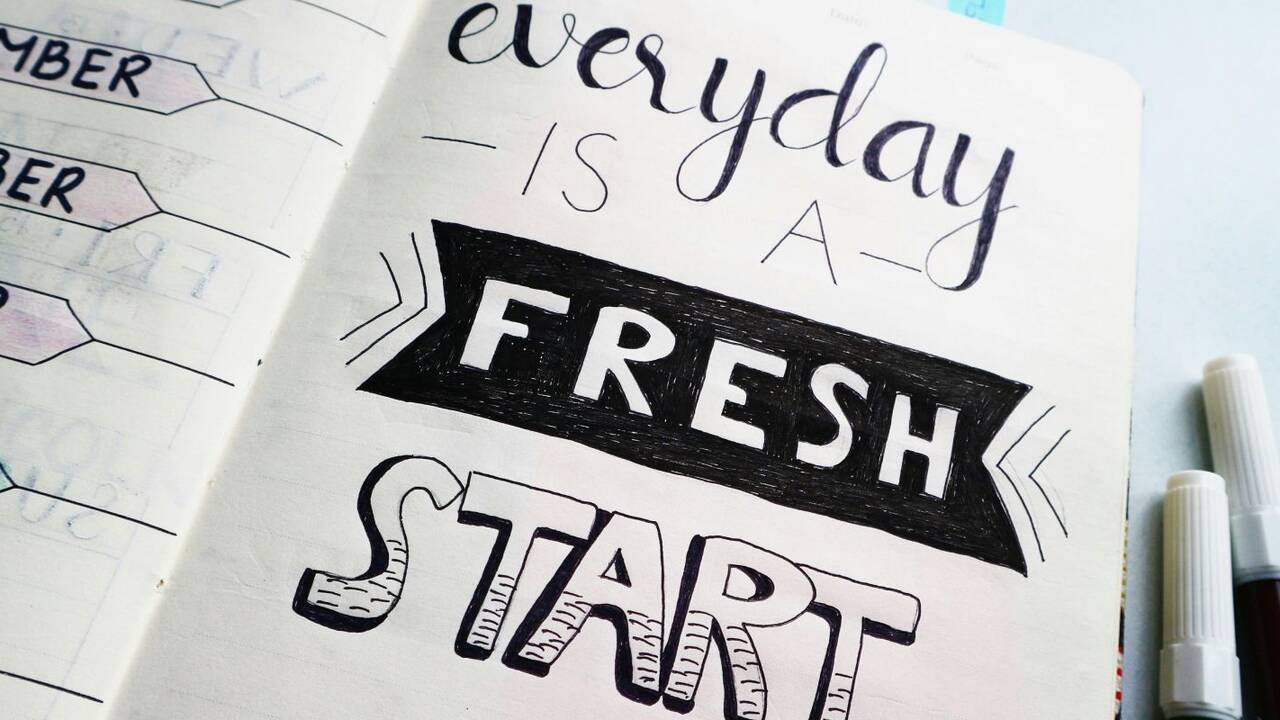 MBER
BER
everyday
IS A
FRESH
START